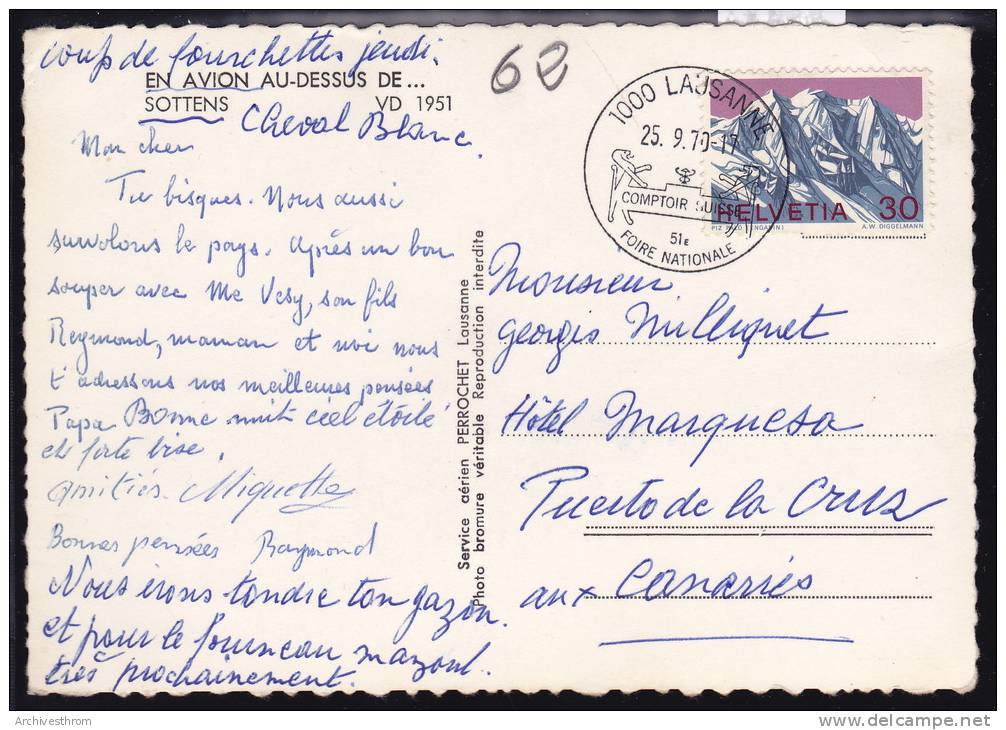 coup de fourchettes jeudi.
EN AVION AU-DESSUS DE...
SOTTENS VD 1951
Cheval Blanc.
Mon cher
Tu bisques. Nous aussi
survolons le pays. Après un bon
souper avec Me Vesy, son fils
Reymond, maman et moi nous
t'adressons nos meilleures pensées
Papa Bonne nuit ciel étoilé
et forte bise.
Amitiés. Miquette
Bonnes pensées Raymond
Nous irons tondre ton gazon.
et pour le fourneau mazout.
très prochainement.
Service aérien PERROCHET Lausanne
Photo bromure véritable Reproduction interdite
62
1000 LAUSANNE
25.9.70-17
COMPTOIR SUISSE
51E
FOIRE NATIONALE
HELVETIA 30
PIZ PALÜ (ENGADIN) A.W. DIGGELMANN
Monsieur
Georges Milliquet
Hôtel Marquesa
Puerto de la Cruz
aux Canaries
Archivesthrom
www.delcampe.net